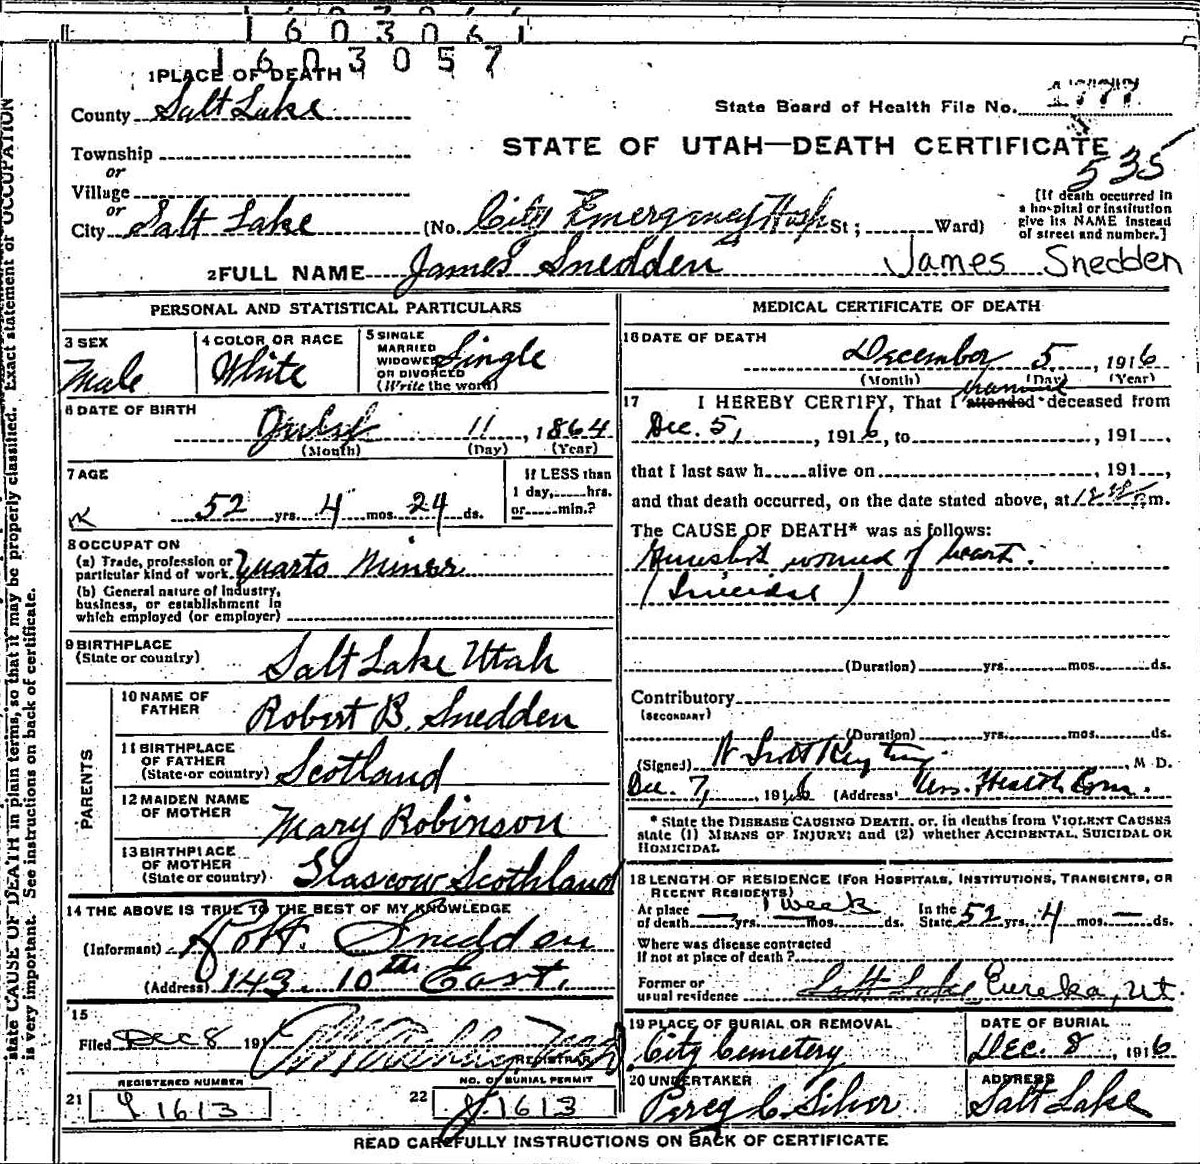 1603061
1603057
1 PLACE OF DEATH
County Salt Lake
State Board of Health File No. 1777
STATE OF UTAH—DEATH CERTIFICATE
535
Township
or
Village
or
City Salt Lake (No. City Emergency Hosp St; Ward)
[If death occurred in
a hospital or institution
give its NAME instead
of street and number.]
2 FULL NAME James Snedden James Snedden
PERSONAL AND STATISTICAL PARTICULARS
3 SEX
Male
4 COLOR OR RACE
White
5 SINGLE
MARRIED
WIDOWED
OR DIVORCED
(Write the word)
Single
6 DATE OF BIRTH
11, 1864
(Month) (Day) (Year)
7 AGE
52 yrs. 4 mos. 24 ds.
If LESS than
1 day, hrs.
or min.?
8 OCCUPATION
(a) Trade, profession or
particular kind of work. Quarts Miner
(b) General nature of Industry,
business, or establishment in
which employed (or employer)
9 BIRTHPLACE
(State or country)
Salt Lake Utah
PARENTS
10 NAME OF
FATHER
Robert B. Snedden
11 BIRTHPLACE
OF FATHER
(State or country)
Scotland
12 MAIDEN NAME
OF MOTHER
Mary Robinson
13 BIRTHPLACE
OF MOTHER
(State or country)
Glascow Scothland
14 THE ABOVE IS TRUE TO THE BEST OF MY KNOWLEDGE
(Informant) Robt. Snedden
(Address) 143 10th East.
15
Filed Dec 8 191
REGISTRAR
REGISTERED NUMBER
21 1613
NO. OF BURIAL PERMIT
22 1613
MEDICAL CERTIFICATE OF DEATH
16 DATE OF DEATH
December 5, 1916
(Month) (Day) (Year)
17 I HEREBY CERTIFY, That I attended deceased from
Dec. 5, 1916, to , 191
that I last saw h alive on , 191 ,
and that death occurred, on the date stated above, at m.
The CAUSE OF DEATH* was as follows:
Gunshot wound of heart.
(Suicidal)
(Duration) yrs. mos. ds.
Contributory
(SECONDARY)
(Duration) yrs. mos. ds.
(Signed) M.D.
Dec. 7, 1916 (Address) Health Com.
* State the DISEASE CAUSING DEATH, or, in deaths from VIOLENT CAUSES
state (1) MEANS OF INJURY; and (2) whether ACCIDENTAL, SUICIDAL OR
HOMICIDAL
18 LENGTH OF RESIDENCE (FOR HOSPITALS, INSTITUTIONS, TRANSIENTS, OR
RECENT RESIDENTS)
At place
of death yrs. 1 week mos. ds.
In the
State 52 yrs. 4 mos. — ds.
Where was disease contracted
if not at place of death?
Former or
usual residence Salt Lake Eureka, Ut.
19 PLACE OF BURIAL OR REMOVAL
City Cemetery
DATE OF BURIAL
DEC. 8, 1916
20 UNDERTAKER
ADDRESS
Salt Lake
READ CAREFULLY INSTRUCTIONS ON BACK OF CERTIFICATE
state CAUSE OF DEATH in plain terms, so that it may be properly classified. Exact statement of OCCUPATION
is very important. See instructions on back of certificate.